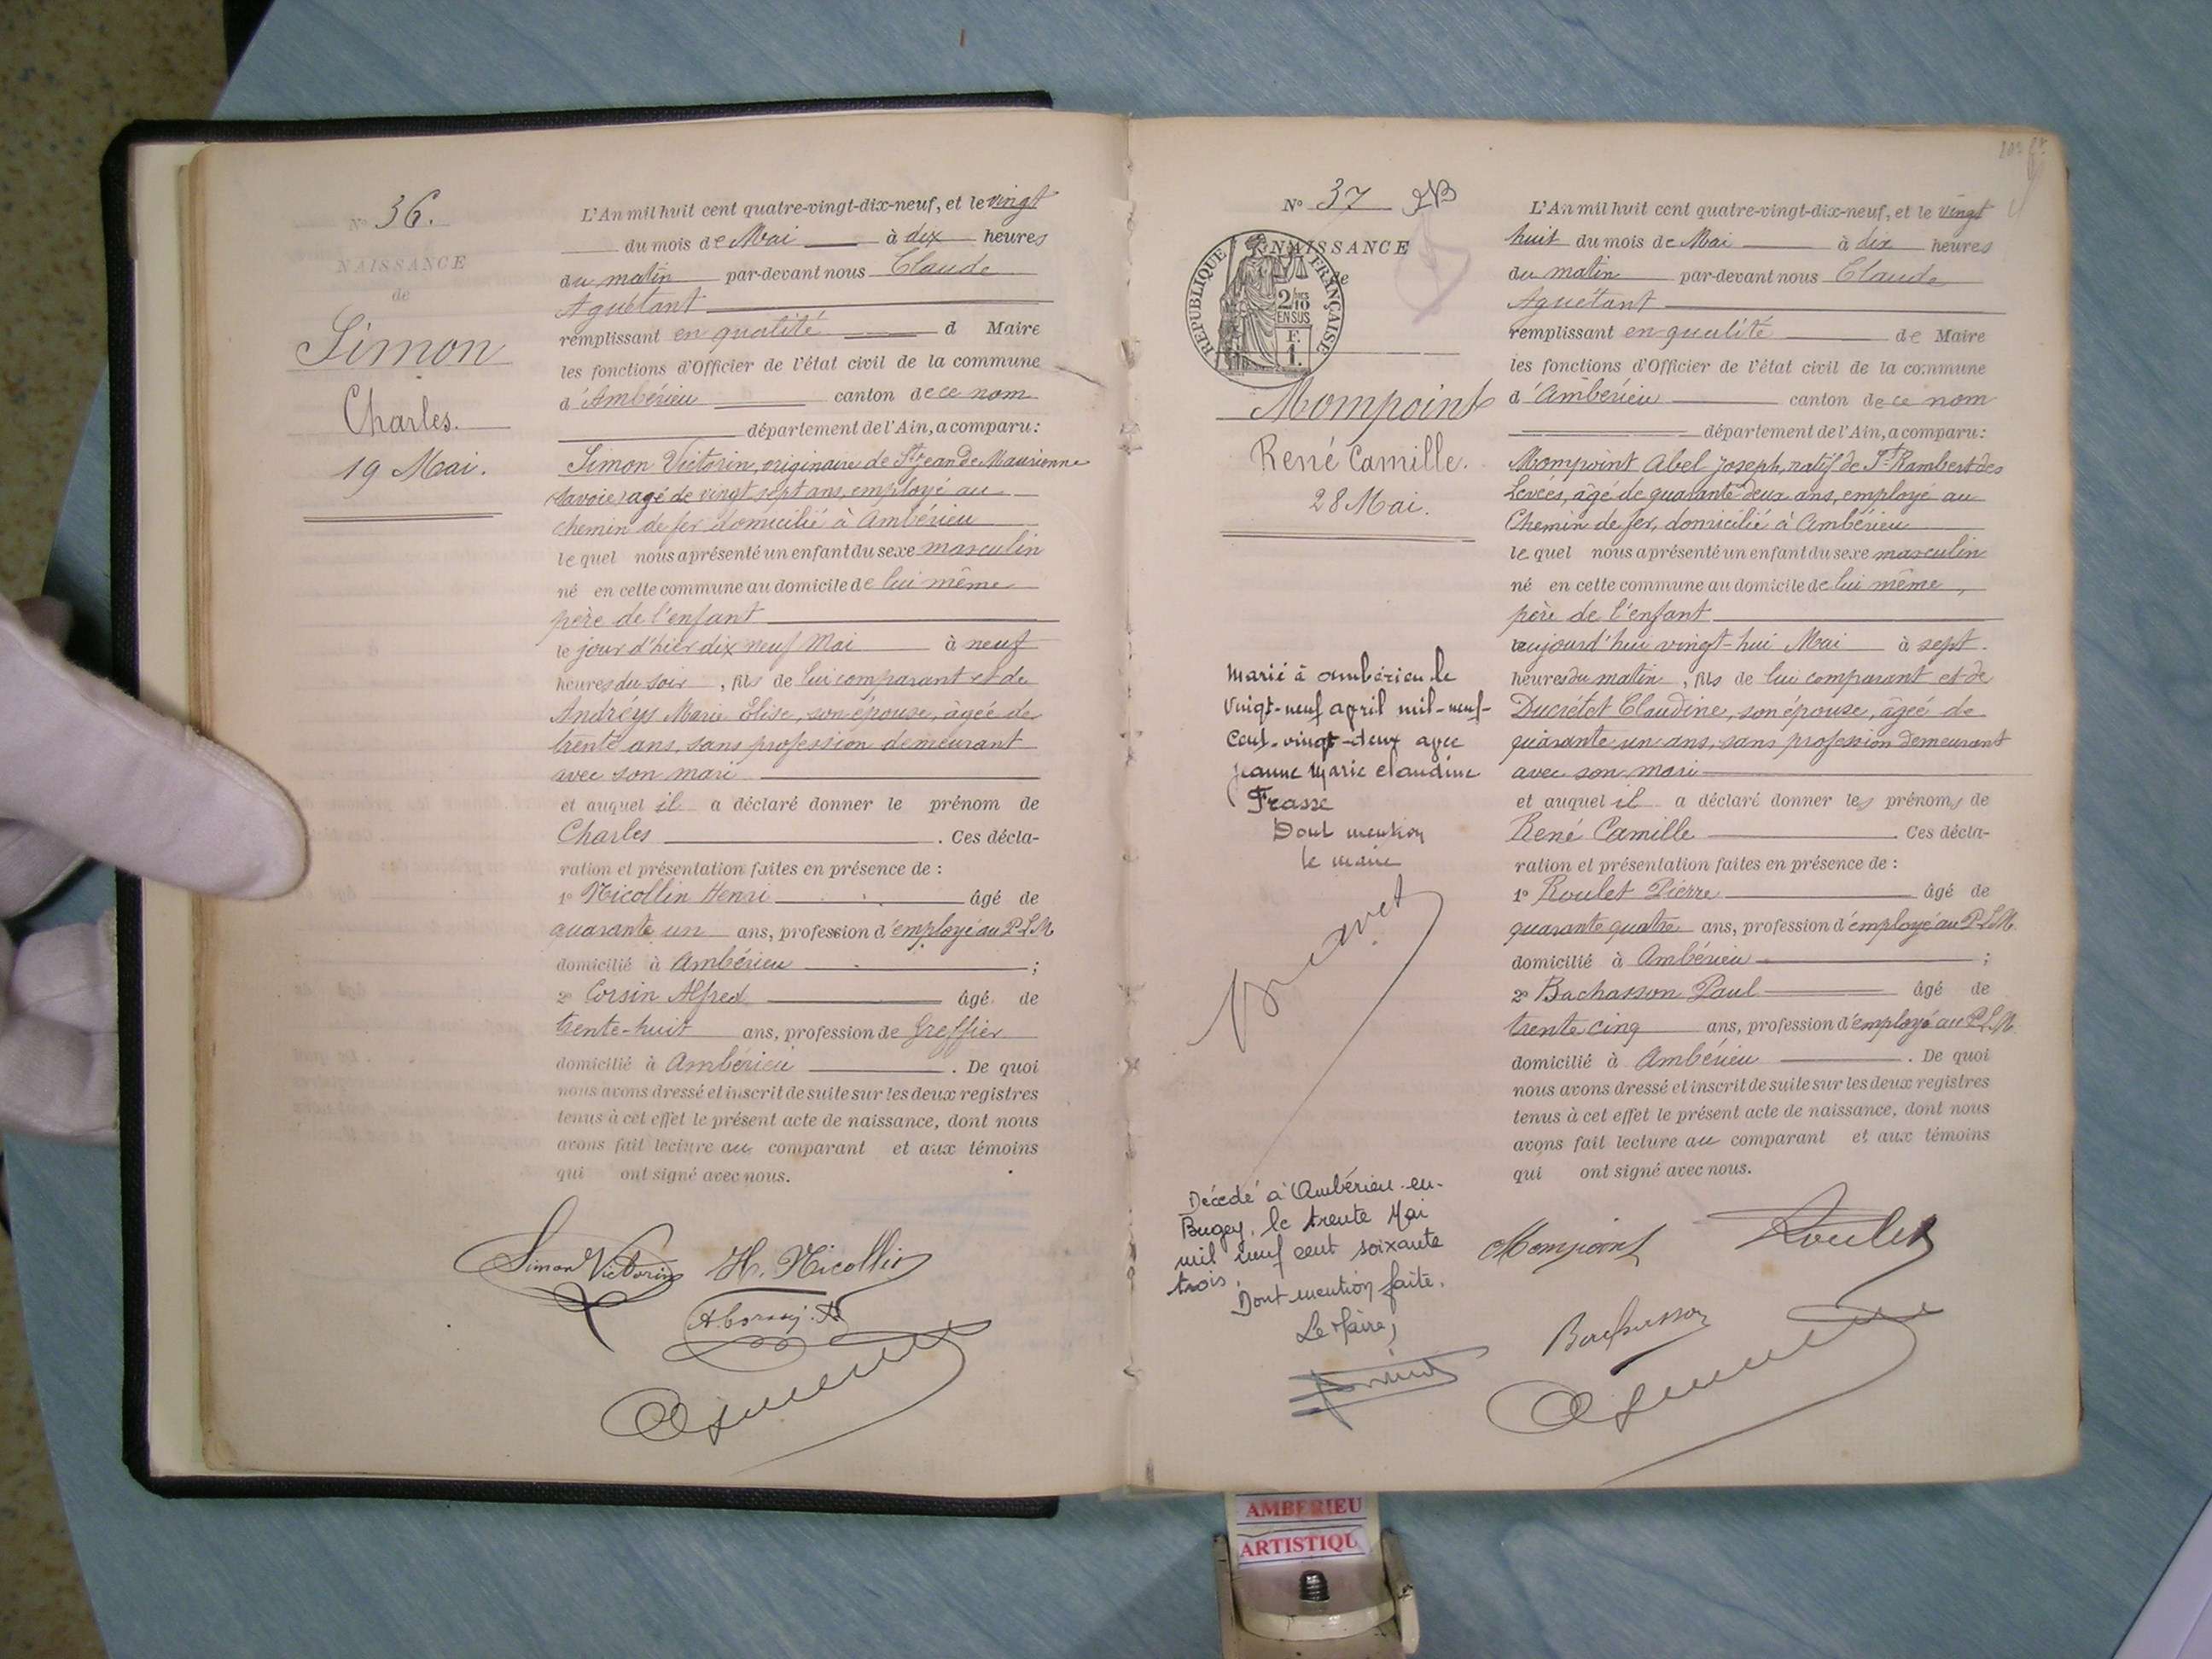 N° 36.
NAISSANCE
de
Simon
Charles.
19 Mai.
L'An mil huit cent quatre-vingt-dix-neuf, et le vingt
du mois de Mai à dix heures
du matin par-devant nous Claude
Aguétant
remplissant en qualité d Maire
les fonctions d'Officier de l'état civil de la commune
d'Ambérieu canton de ce nom
département de l'Ain, a comparu :
Simon Victorin, originaire de St Jean de Maurienne
Savoie, agé de vingt sept ans, employé au
chemin de fer domicilié à Ambérieu
le quel nous a présenté un enfant du sexe masculin
né en cette commune au domicile de lui même
père de l'enfant
le jour d'hier dix neuf Mai à neuf
heures du soir, fils de lui comparant et de
Andréys Marie Elise, son épouse, âgée de
trente ans, sans profession demeurant
avec son mari
et auquel il a déclaré donner le prénom de
Charles. Ces décla-
ration et présentation faites en présence de :
1° Nicollin Henri âgé de
quarante un ans, profession d'employé au P.L.M
domicilié à Ambérieu ;
2° Corsin Alfred âgé de
trente-huit ans, profession de Greffier
domicilié à Ambérieu. De quoi
nous avons dressé et inscrit de suite sur les deux registres
tenus à cet effet le présent acte de naissance, dont nous
avons fait lecture au comparant et aux témoins
qui ont signé avec nous.
Simon Victorin H. Nicollin
N° 37
NAISSANCE
de
RÉPUBLIQUE FRANÇAISE
2/10
EN SUS
F.
1.
Mompoint
René Camille.
28 Mai.
Marié à Ambérieu le
vingt-neuf april mil-neuf-
cent-vingt-deux avec
Jeanne Marie Claudine
Frasse
Dont mention
le maire
Décédé à Ambérieu-en-
Bugey, le trente Mai
mil neuf cent soixante
trois.
Dont mention faite.
Le Maire,
L'An mil huit cent quatre-vingt-dix-neuf, et le vingt
huit du mois de Mai à dix heures
du matin par-devant nous Claude
Aguétant
remplissant en qualité de Maire
les fonctions d'Officier de l'état civil de la commune
d'Ambérieu canton de ce nom
département de l'Ain, a comparu :
Mompoint Abel Joseph, natif de St Rambert des
Levées, âgé de quarante deux ans, employé au
Chemin de fer, domicilié à Ambérieu
le quel nous a présenté un enfant du sexe masculin
né en cette commune au domicile de lui même,
père de l'enfant
aujourd'hui vingt-hui Mai à sept
heures du matin, fils de lui comparant et de
Ducrétet Claudine, son épouse, âgée de
quarante un ans, sans profession demeurant
avec son mari
et auquel il a déclaré donner les prénoms de
René Camille. Ces décla-
ration et présentation faites en présence de :
1° Roulet Pierre âgé de
quarante quatre ans, profession d'employé au P.L.M.
domicilié à Ambérieu ;
2° Bachasson Paul âgé de
trente cinq ans, profession d'employé au P.L.M.
domicilié à Ambérieu. De quoi
nous avons dressé et inscrit de suite sur les deux registres
tenus à cet effet le présent acte de naissance, dont nous
avons fait lecture au comparant et aux témoins
qui ont signé avec nous.
Mompoint Roulet
Bachasson
AMBERIEU
ARTISTIQU